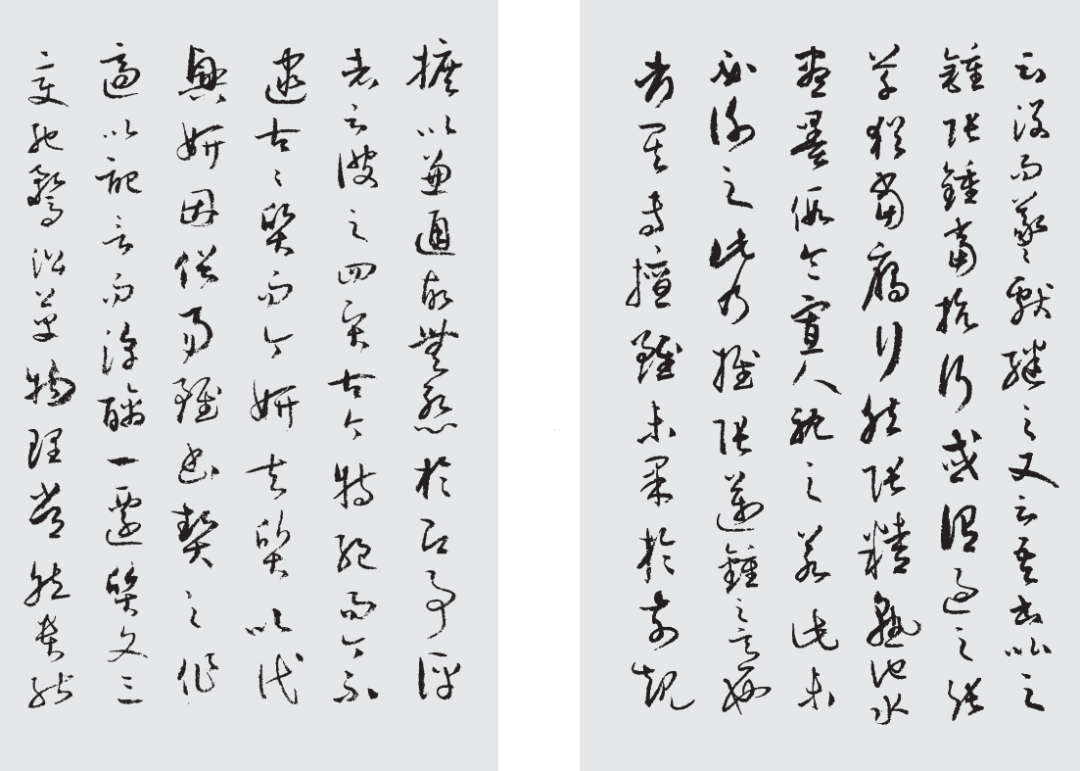 云沒而羲獻繼之又云吾書比之
鍾張鍾當抗行或謂過之張
草猶當雁行然張精熟池水
盡墨假令寡人耽之若此未
必謝之此乃推張邁鍾之意也
考其專擅雖未果於前規
摭以兼通故無慚於即事評
者云彼之四賢古今特絕而今不
逮古〻質而今妍夫質以代
興妍因俗易雖書契之作
適以記言而淳醨一遷質文三
變馳騖沿革物理常然貴能